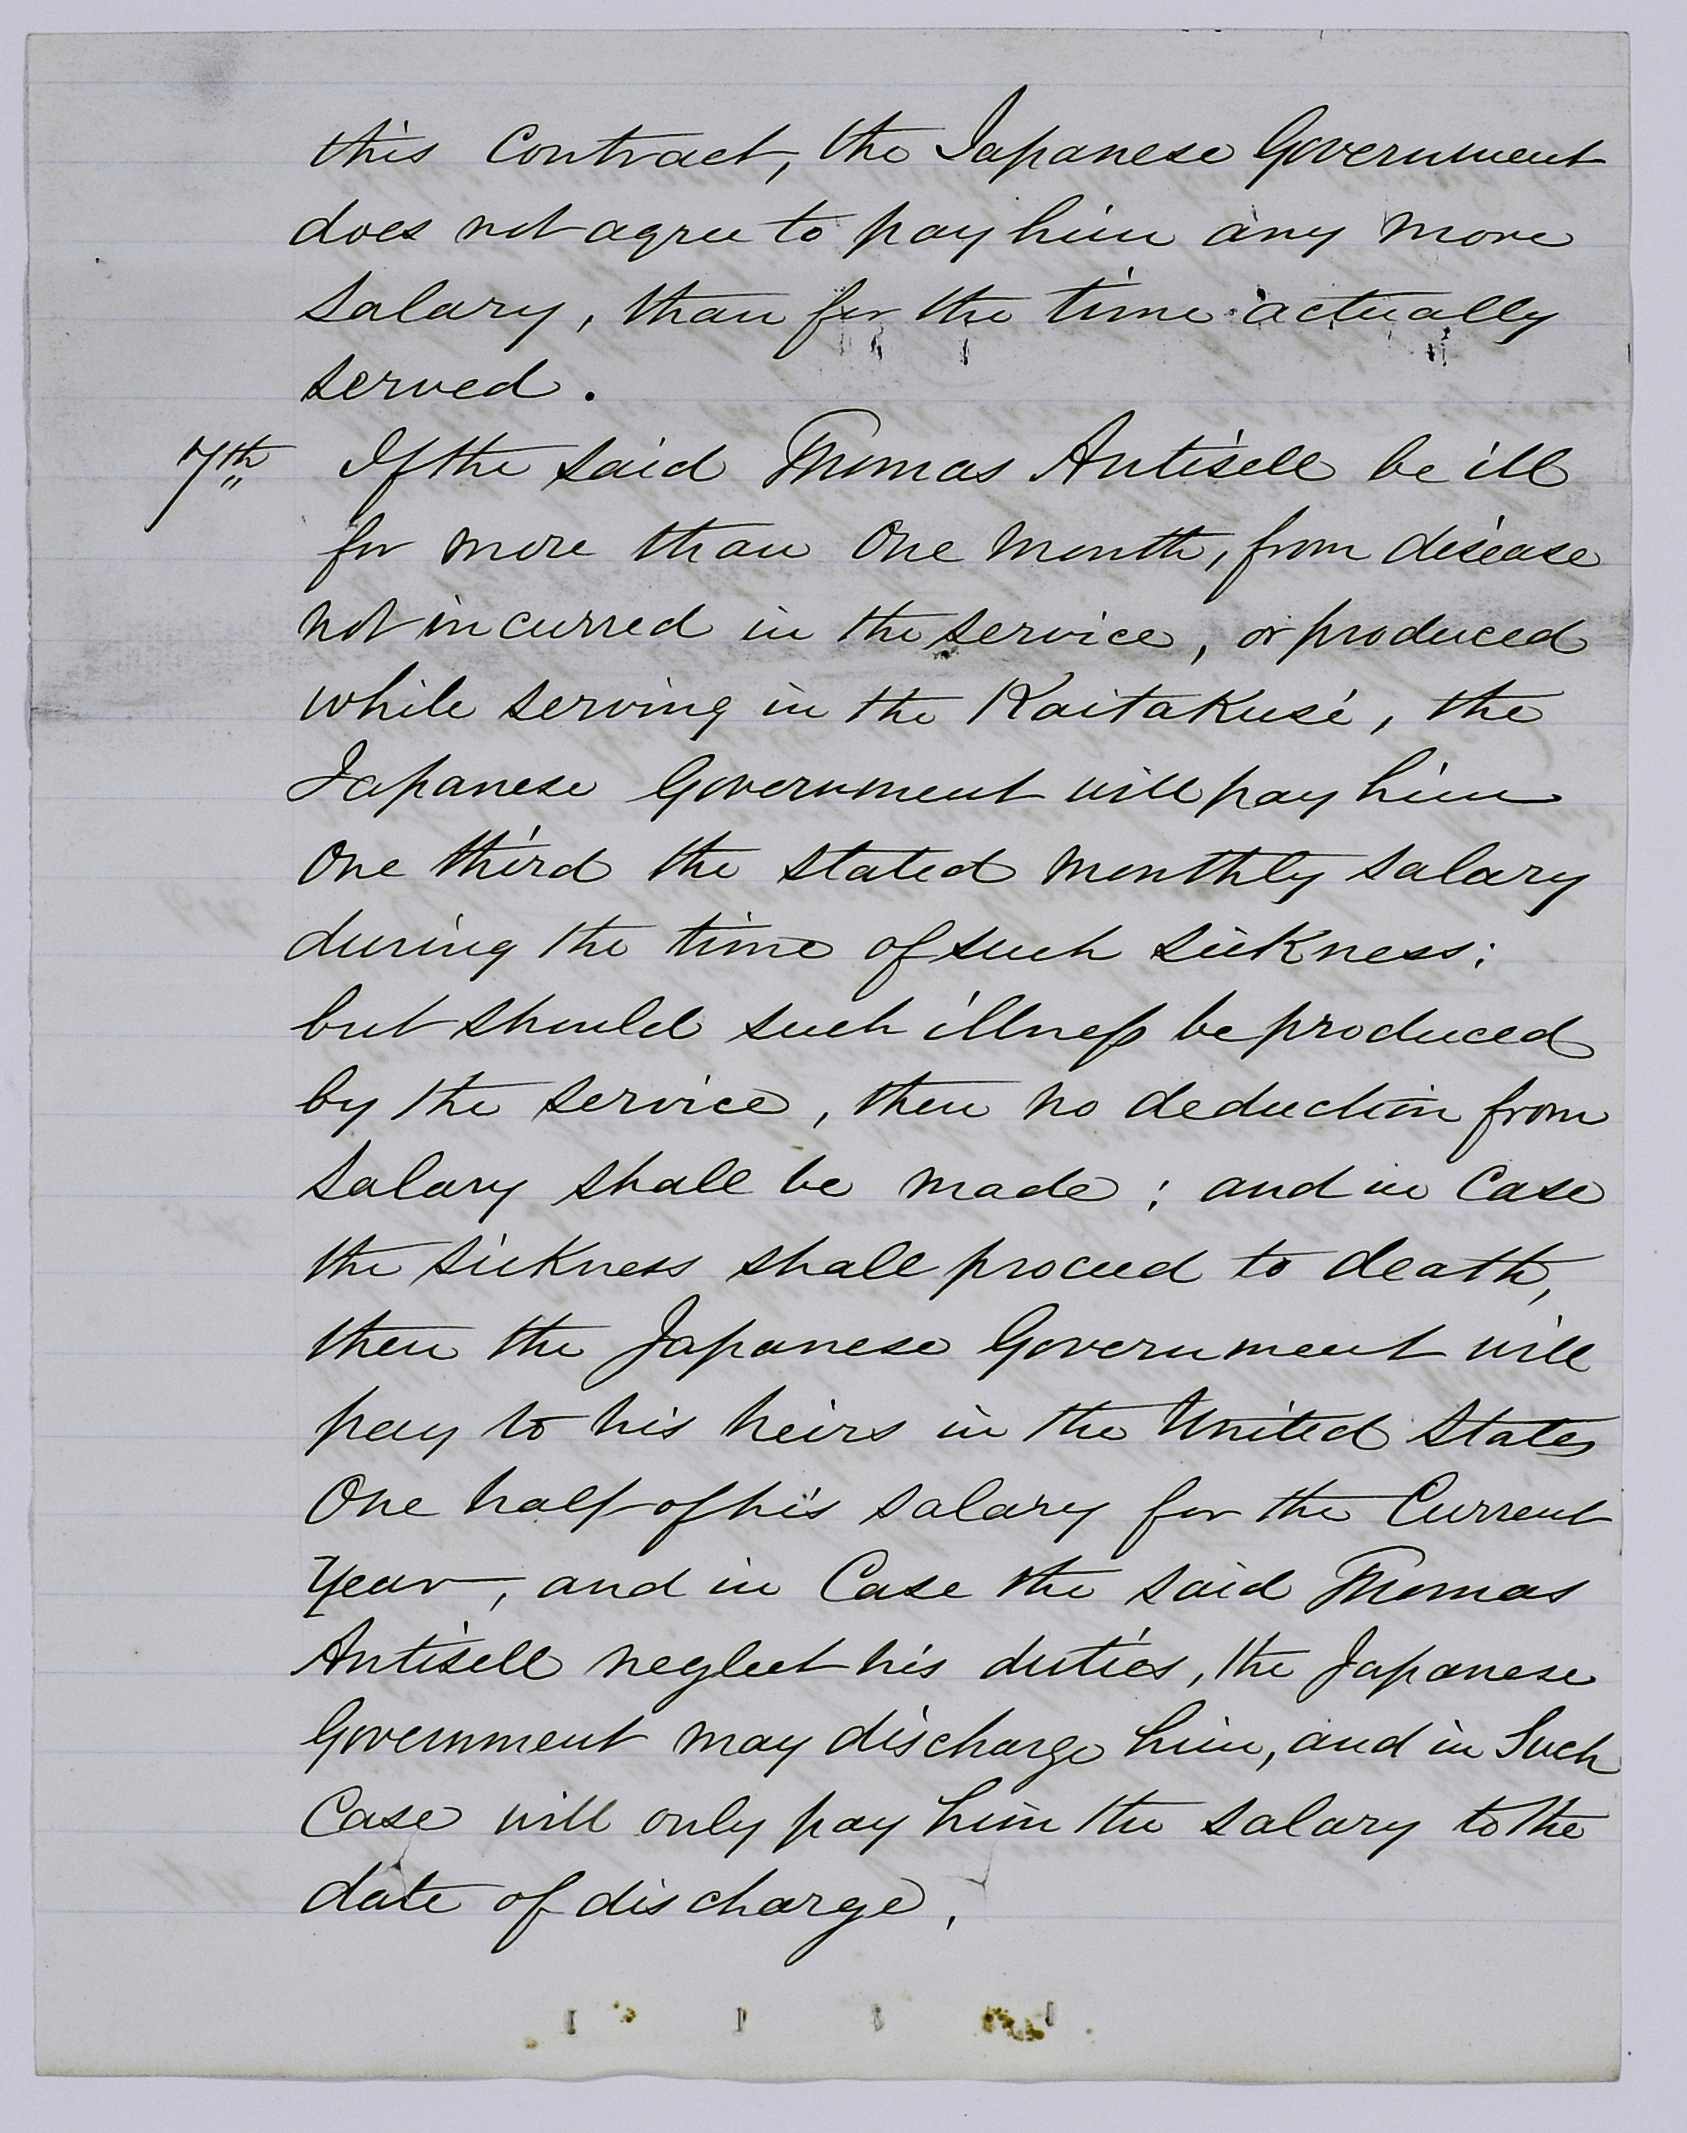 this Contract, the Japanese Government
does not agree to pay him any more
salary, than for the time actually
served.
7th If the said Thomas Antisell be ill
for more than One month, from disease
not incurred in the service, or produced
while serving in the Kaitakusé, the
Japanese Government will pay him
One third the stated monthly salary
during the time of such sickness;
but should such illness be produced
by the service, then no deduction from
salary shall be made; and in Case
the sickness shall proceed to death,
then the Japanese Government will
pay to his heirs in the United States
One half of his salary for the Current
Year, and in Case the said Thomas
Antisell neglect his duties, the Japanese
Government may discharge him, and in Such
Case will only pay him the salary to the
date of discharge.